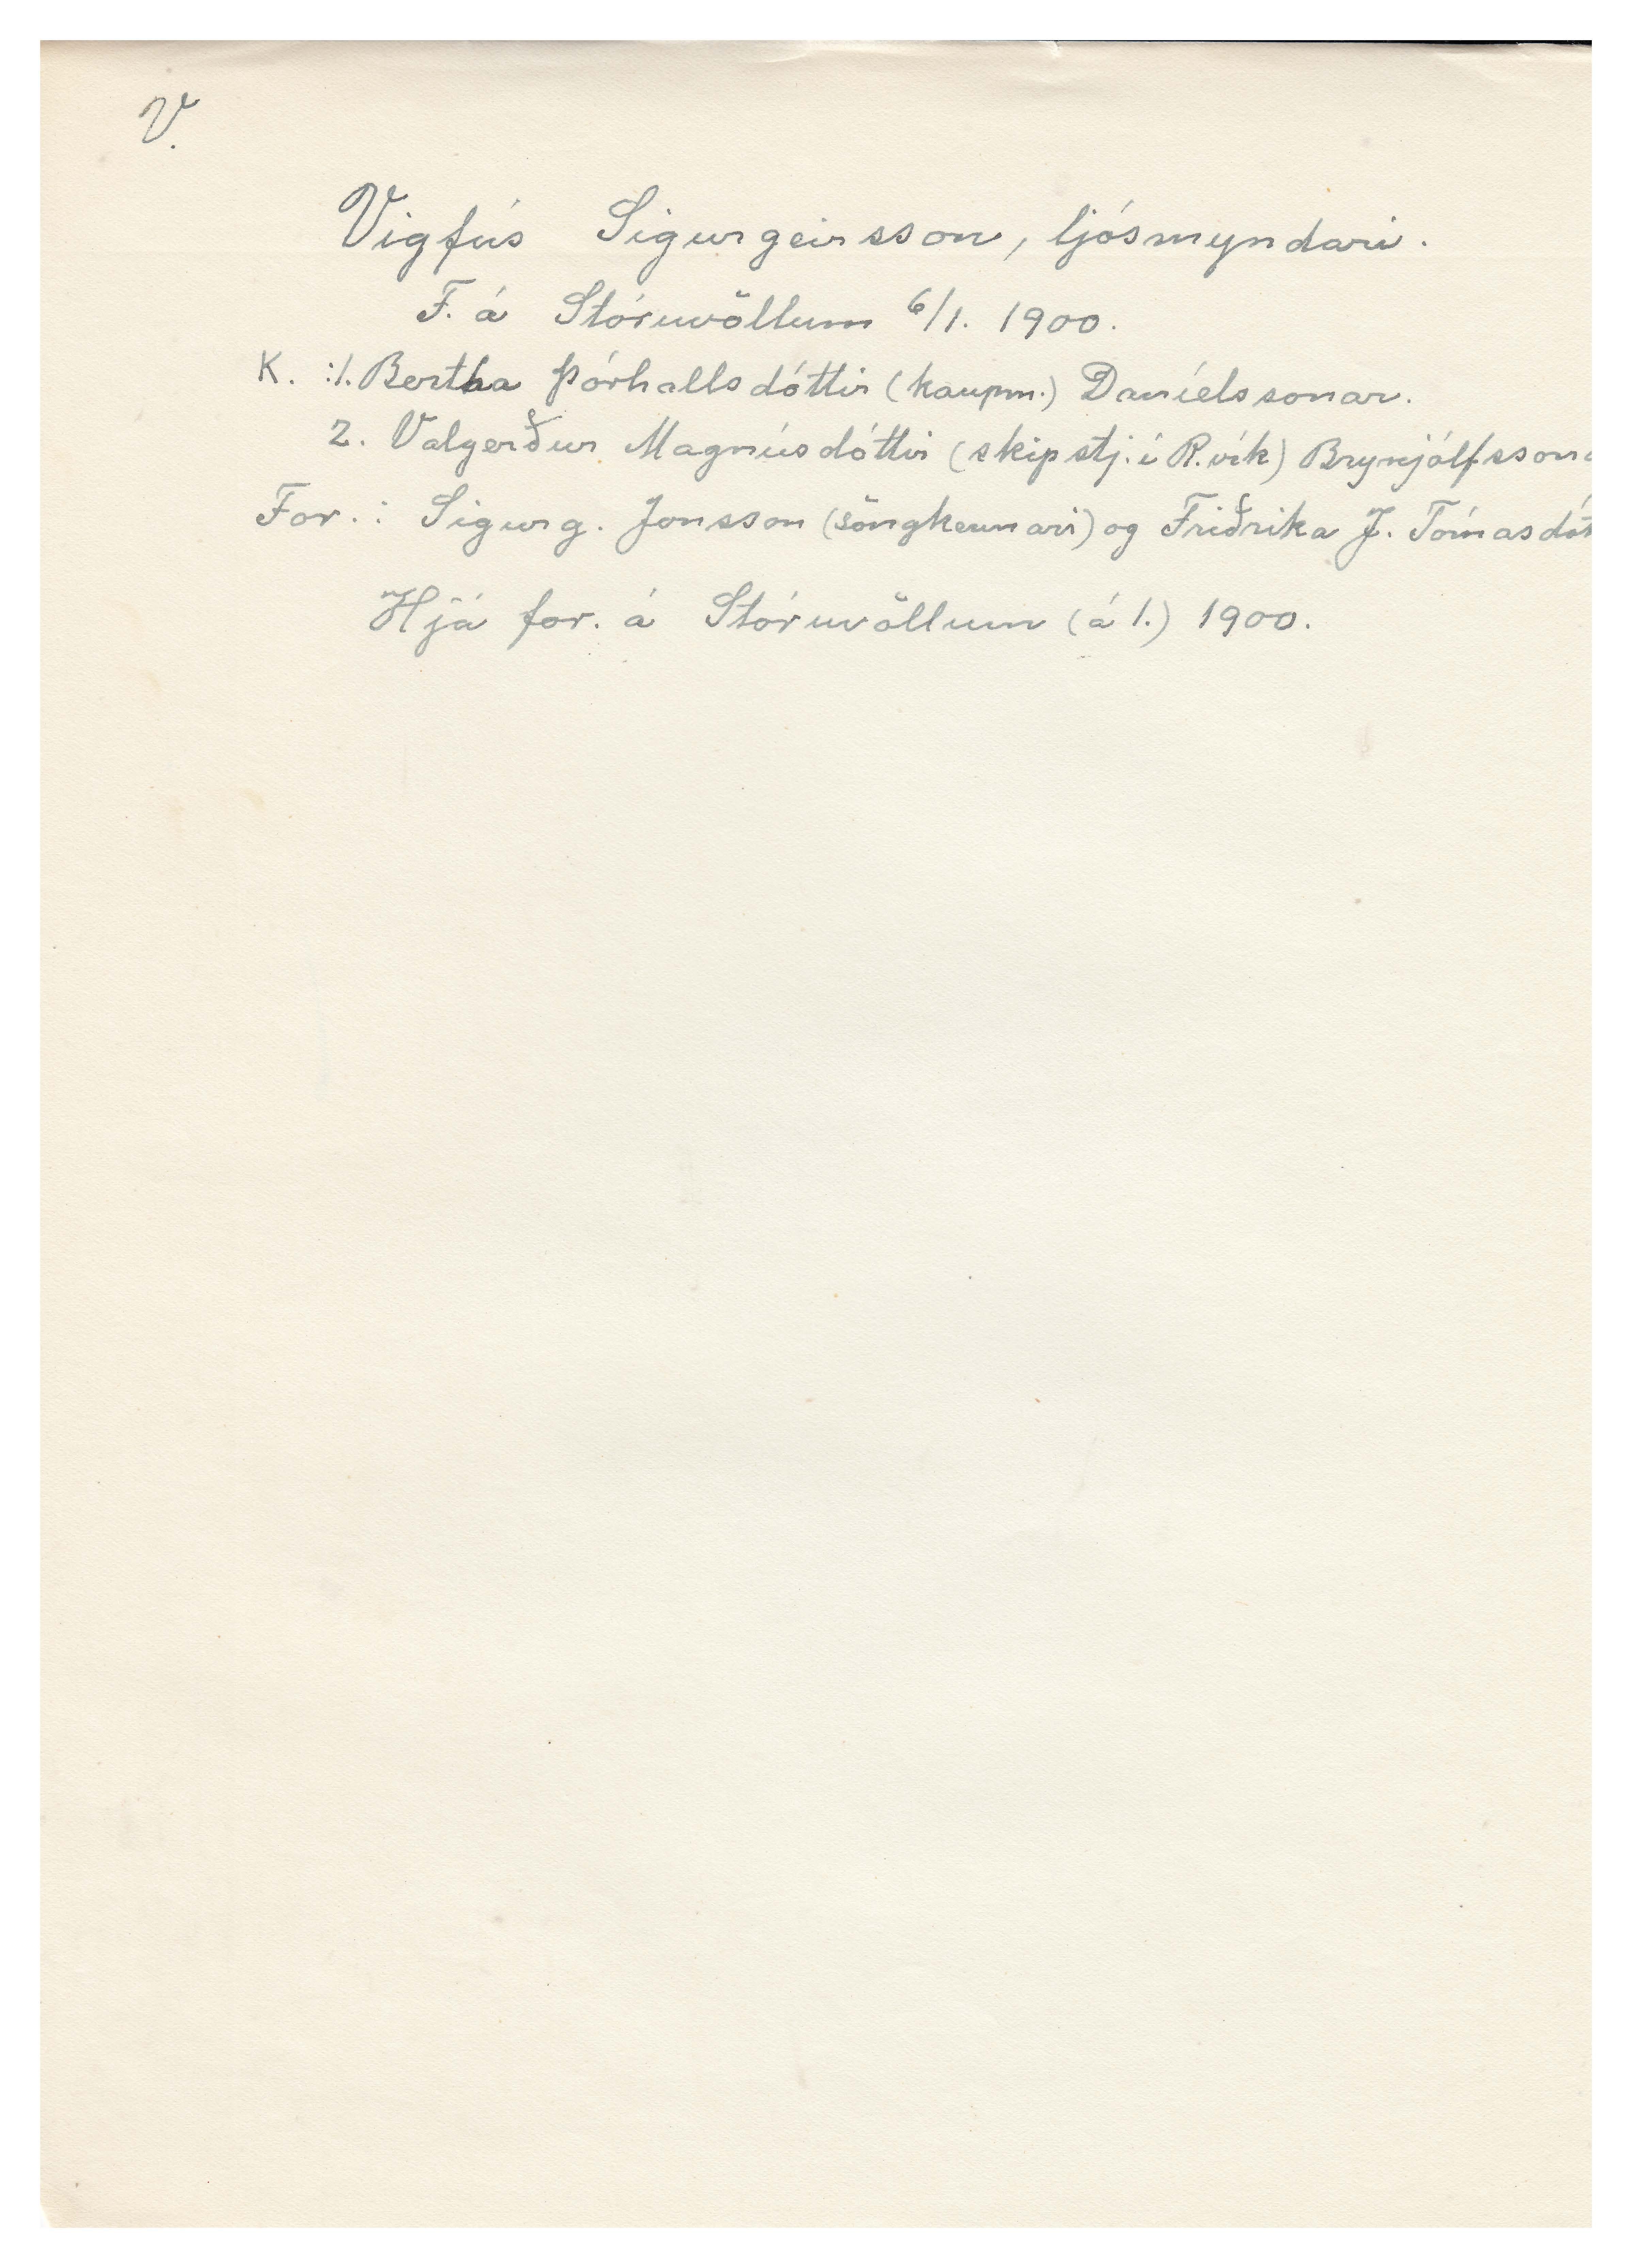 V.
Vigfús Sigurgeirsson, ljósmyndari.
F. á Stóruvöllum 6/1. 1900.
K. :1. Bertha Þórhallsdóttir (kaupm.) Daníelssonar.
2. Valgerður Magnúsdóttir (skipstj. í R.vík) Brynjólfssona
For. : Sigurg. Jónsson (söngkennari) og Friðrika J. Tómasdót
Hjá for. á Stóruvöllum (á 1.) 1900.